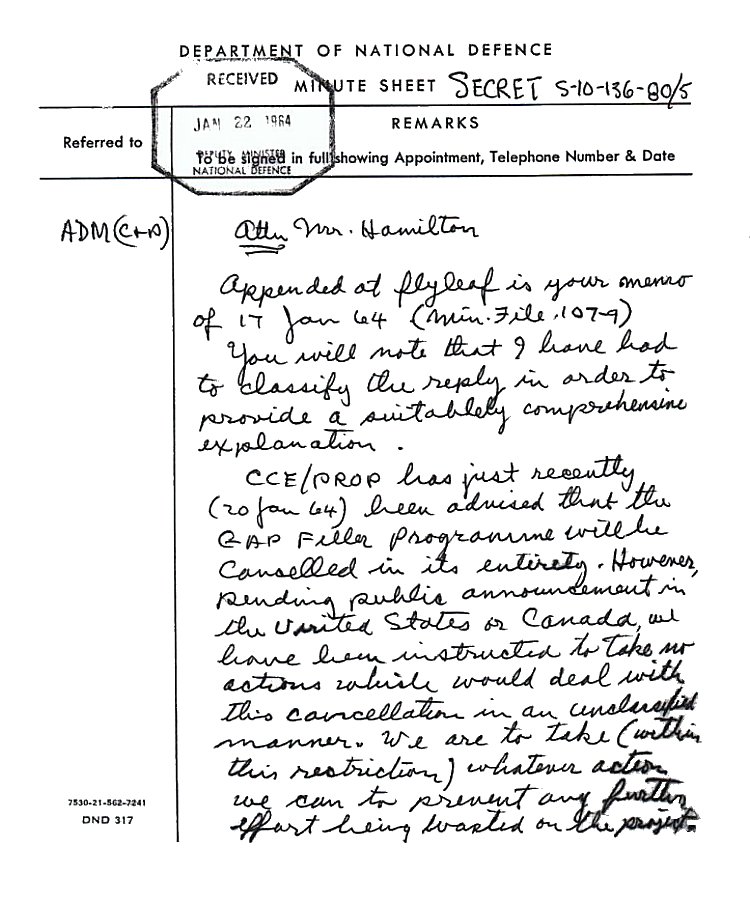 DEPARTMENT OF NATIONAL DEFENCE
RECEIVED
MINUTE SHEET SECRET S-10-136-80/5
JAN 22 1964
REMARKS
Referred to
DEPUTY MINISTER
To be signed in full showing Appointment, Telephone Number & Date
NATIONAL DEFENCE
ADM(C+P)
Attn Mr. Hamilton
Appended at flyleaf is your memo
of 17 Jan 64 (Min. File 107-9)
You will note that I have had
to classify the reply in order to
provide a suitablely comprehensive
explanation.
CCE/PROP has just recently
(20 Jan 64) been advised that the
GAP Filler Programme will be
cancelled in its entirety. However,
pending public announcement in
the United States or Canada, we
have been instructed to take no
actions which would deal with
this cancellation in an unclassified
manner. We are to take (within
this restriction) whatever action
we can to prevent any further
effort being wasted on the project.
7530-21-562-7241
DND 317